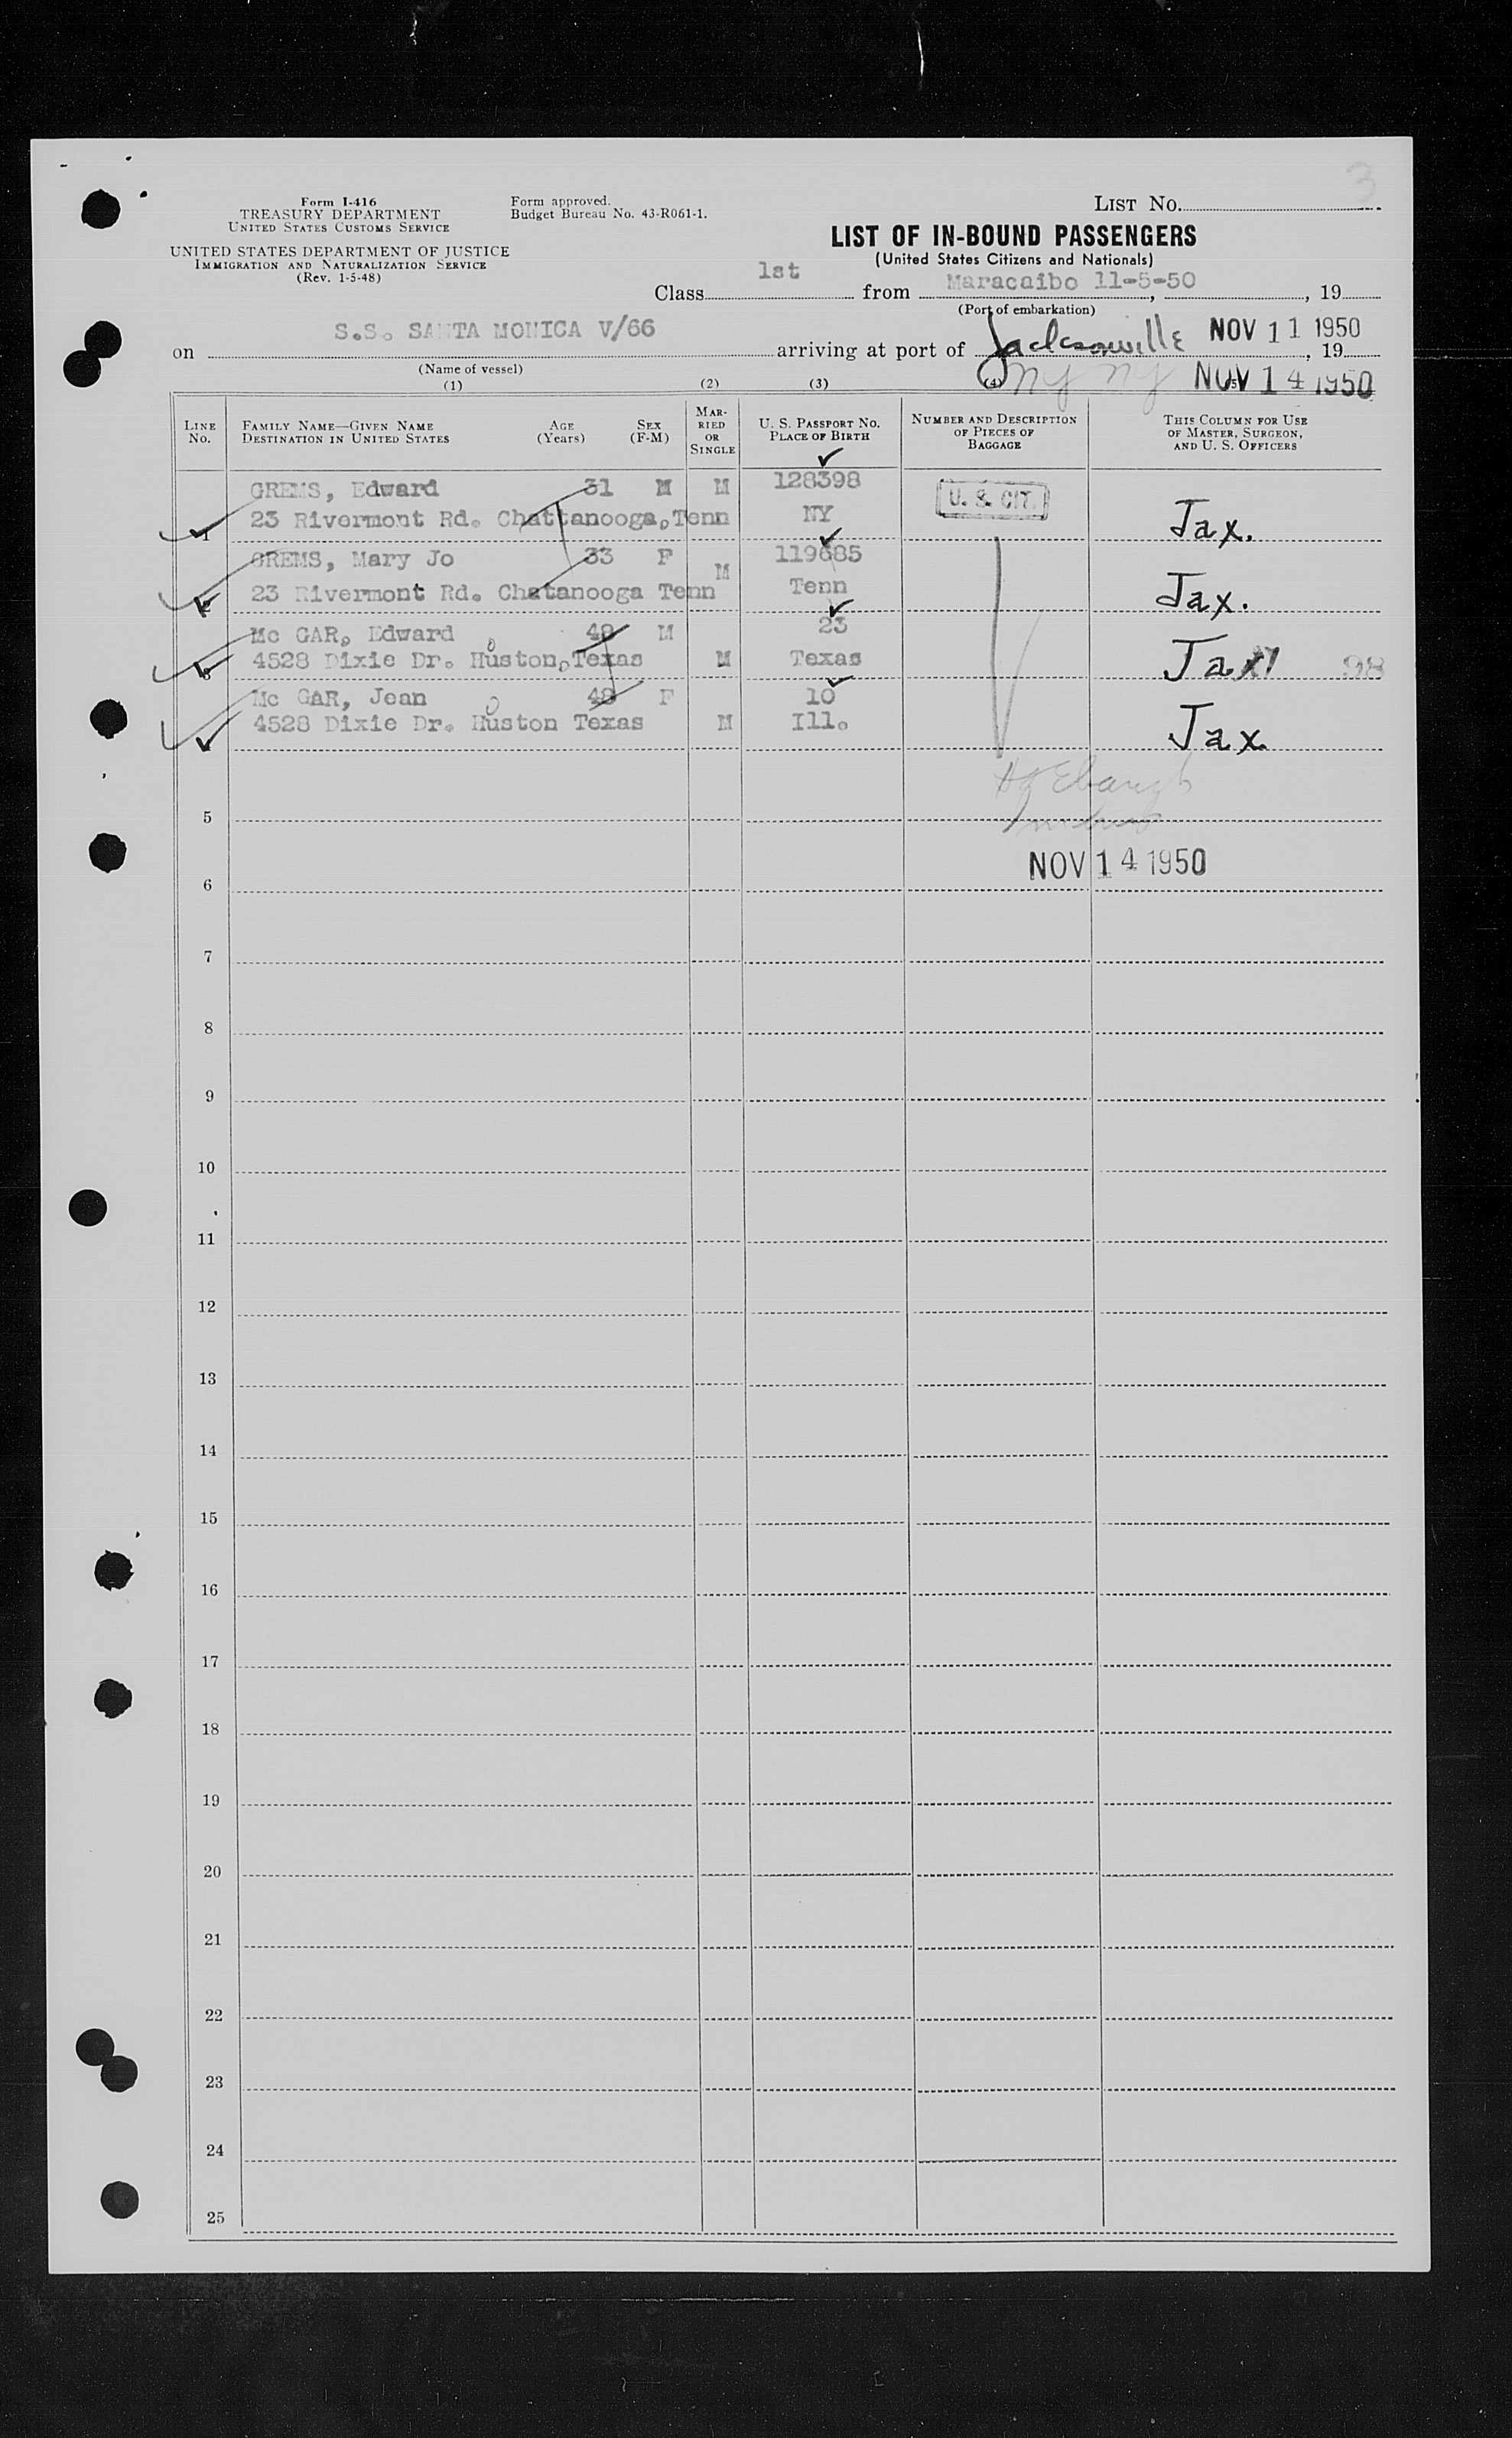 3
Form I-416
TREASURY DEPARTMENT
UNITED STATES CUSTOMS SERVICE
Form approved.
Budget Bureau No. 43-R061-1.
LIST No.
UNITED STATES DEPARTMENT OF JUSTICE
IMMIGRATION AND NATURALIZATION SERVICE
(Rev. 1-5-48)
LIST OF IN-BOUND PASSENGERS
(United States Citizens and Nationals)
Class 1st from Maracaibo 11-5-50, , 19
(Port of embarkation)
on S.S. SANTA MONICA V/66 arriving at port of Jacksonville NOV 11 1950, 19
(Name of vessel)
NY NY NOV 14 1950
(1) (2) (3) (4) (5)
LINE No. FAMILY NAME—GIVEN NAME DESTINATION IN UNITED STATES AGE (Years) SEX (F-M) MARRIED OR SINGLE U. S. PASSPORT NO. PLACE OF BIRTH NUMBER AND DESCRIPTION OF PIECES OF BAGGAGE THIS COLUMN FOR USE OF MASTER, SURGEON, AND U. S. OFFICERS
GREMS, Edward 31 M M 128398 U. S. CIT.
1 23 Rivermont Rd. Chattanooga, Tenn NY Jax.
GREMS, Mary Jo 33 F M 119685
2 23 Rivermont Rd. Chatanooga Tenn Tenn Jax.
Mc GAR, Edward 48 M 23
3 4528 Dixie Dr. Huston, Texas M Texas Jax 98
Mc GAR, Jean 48 F 10
4528 Dixie Dr. Huston Texas M Ill. Jax
5
NOV 14 1950
6
7
8
9
10
11
12
13
14
15
16
17
18
19
20
21
22
23
24
25